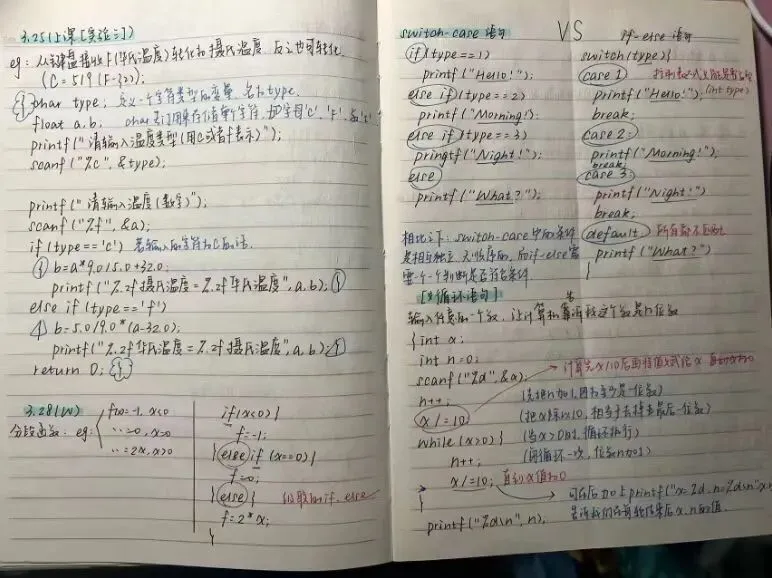 3.25(上课[实验三]
eg: 从键盘接收F(华氏温度)转化为摄氏温度 反之也可转化
(C=5/9(F-32));
{ char type; 定义一个字符类型的变量, 名为type.
float a.b; char专门用来存储单个字符, 如字母'C'、'F'
printf("请输入温度类型(用C或者f表示)");
scanf("%c",&type);
printf("请输入温度(数字)");
scanf("%f",&a);
if(type=='c') 若输入的字符为C的话
{ b=a*9.0/5.0+32.0;
printf("%.2f摄氏温度=%.2f华氏温度",a,b);}
else if(type=='f')
{ b=5.0/9.0*(a-32.0);
printf("%.2f华氏温度=%.2f摄氏温度",a,b);}
return 0; }
3.28(W)
分段函数. eg: { f(x)=-1, x<0
··=0, x=0
··=2x, x>0
if(x<0){
f=-1;
}else if(x==0){
f=0;
}else{ 仅限和if.else
f=2*x;
}
switch-case 语句 VS if-else 语句
if(type==1)
printf("Hello!");
else if(type==2)
printf("Morning!);
else if(type==3)
pringtf("Night!");
else
printf("What?");
switch(type){
case 1: (int type)
printf("Hello!");
break;
case 2:
printf("Morning!");
break;
case 3:
printf("Night!")
break;
default: 所有都不匹配
printf("What?")
}
相比之下: switch-case中的条件
是相互独立, 无顺序的, 而if-else需
要一个一个判断是否符合条件
循环语句]
输入任意的一个数, 让计算机算所报这个数是几位数
{int x;
int n=0;
scanf("%d",&x);
n++; (先把n加1,因为至少是一位数)
x/=10; (把x除以10,相当于去掉最后一位数)
计算完x/10后再将值赋给x
while(x>0){ (当x>0时,循环执行)
n++; (每循环一次, 位数n加1)
x/=10; 直到x值为0
}
可在后加上printf("x=%d,n=%d\n"
printf("%d\n",n);